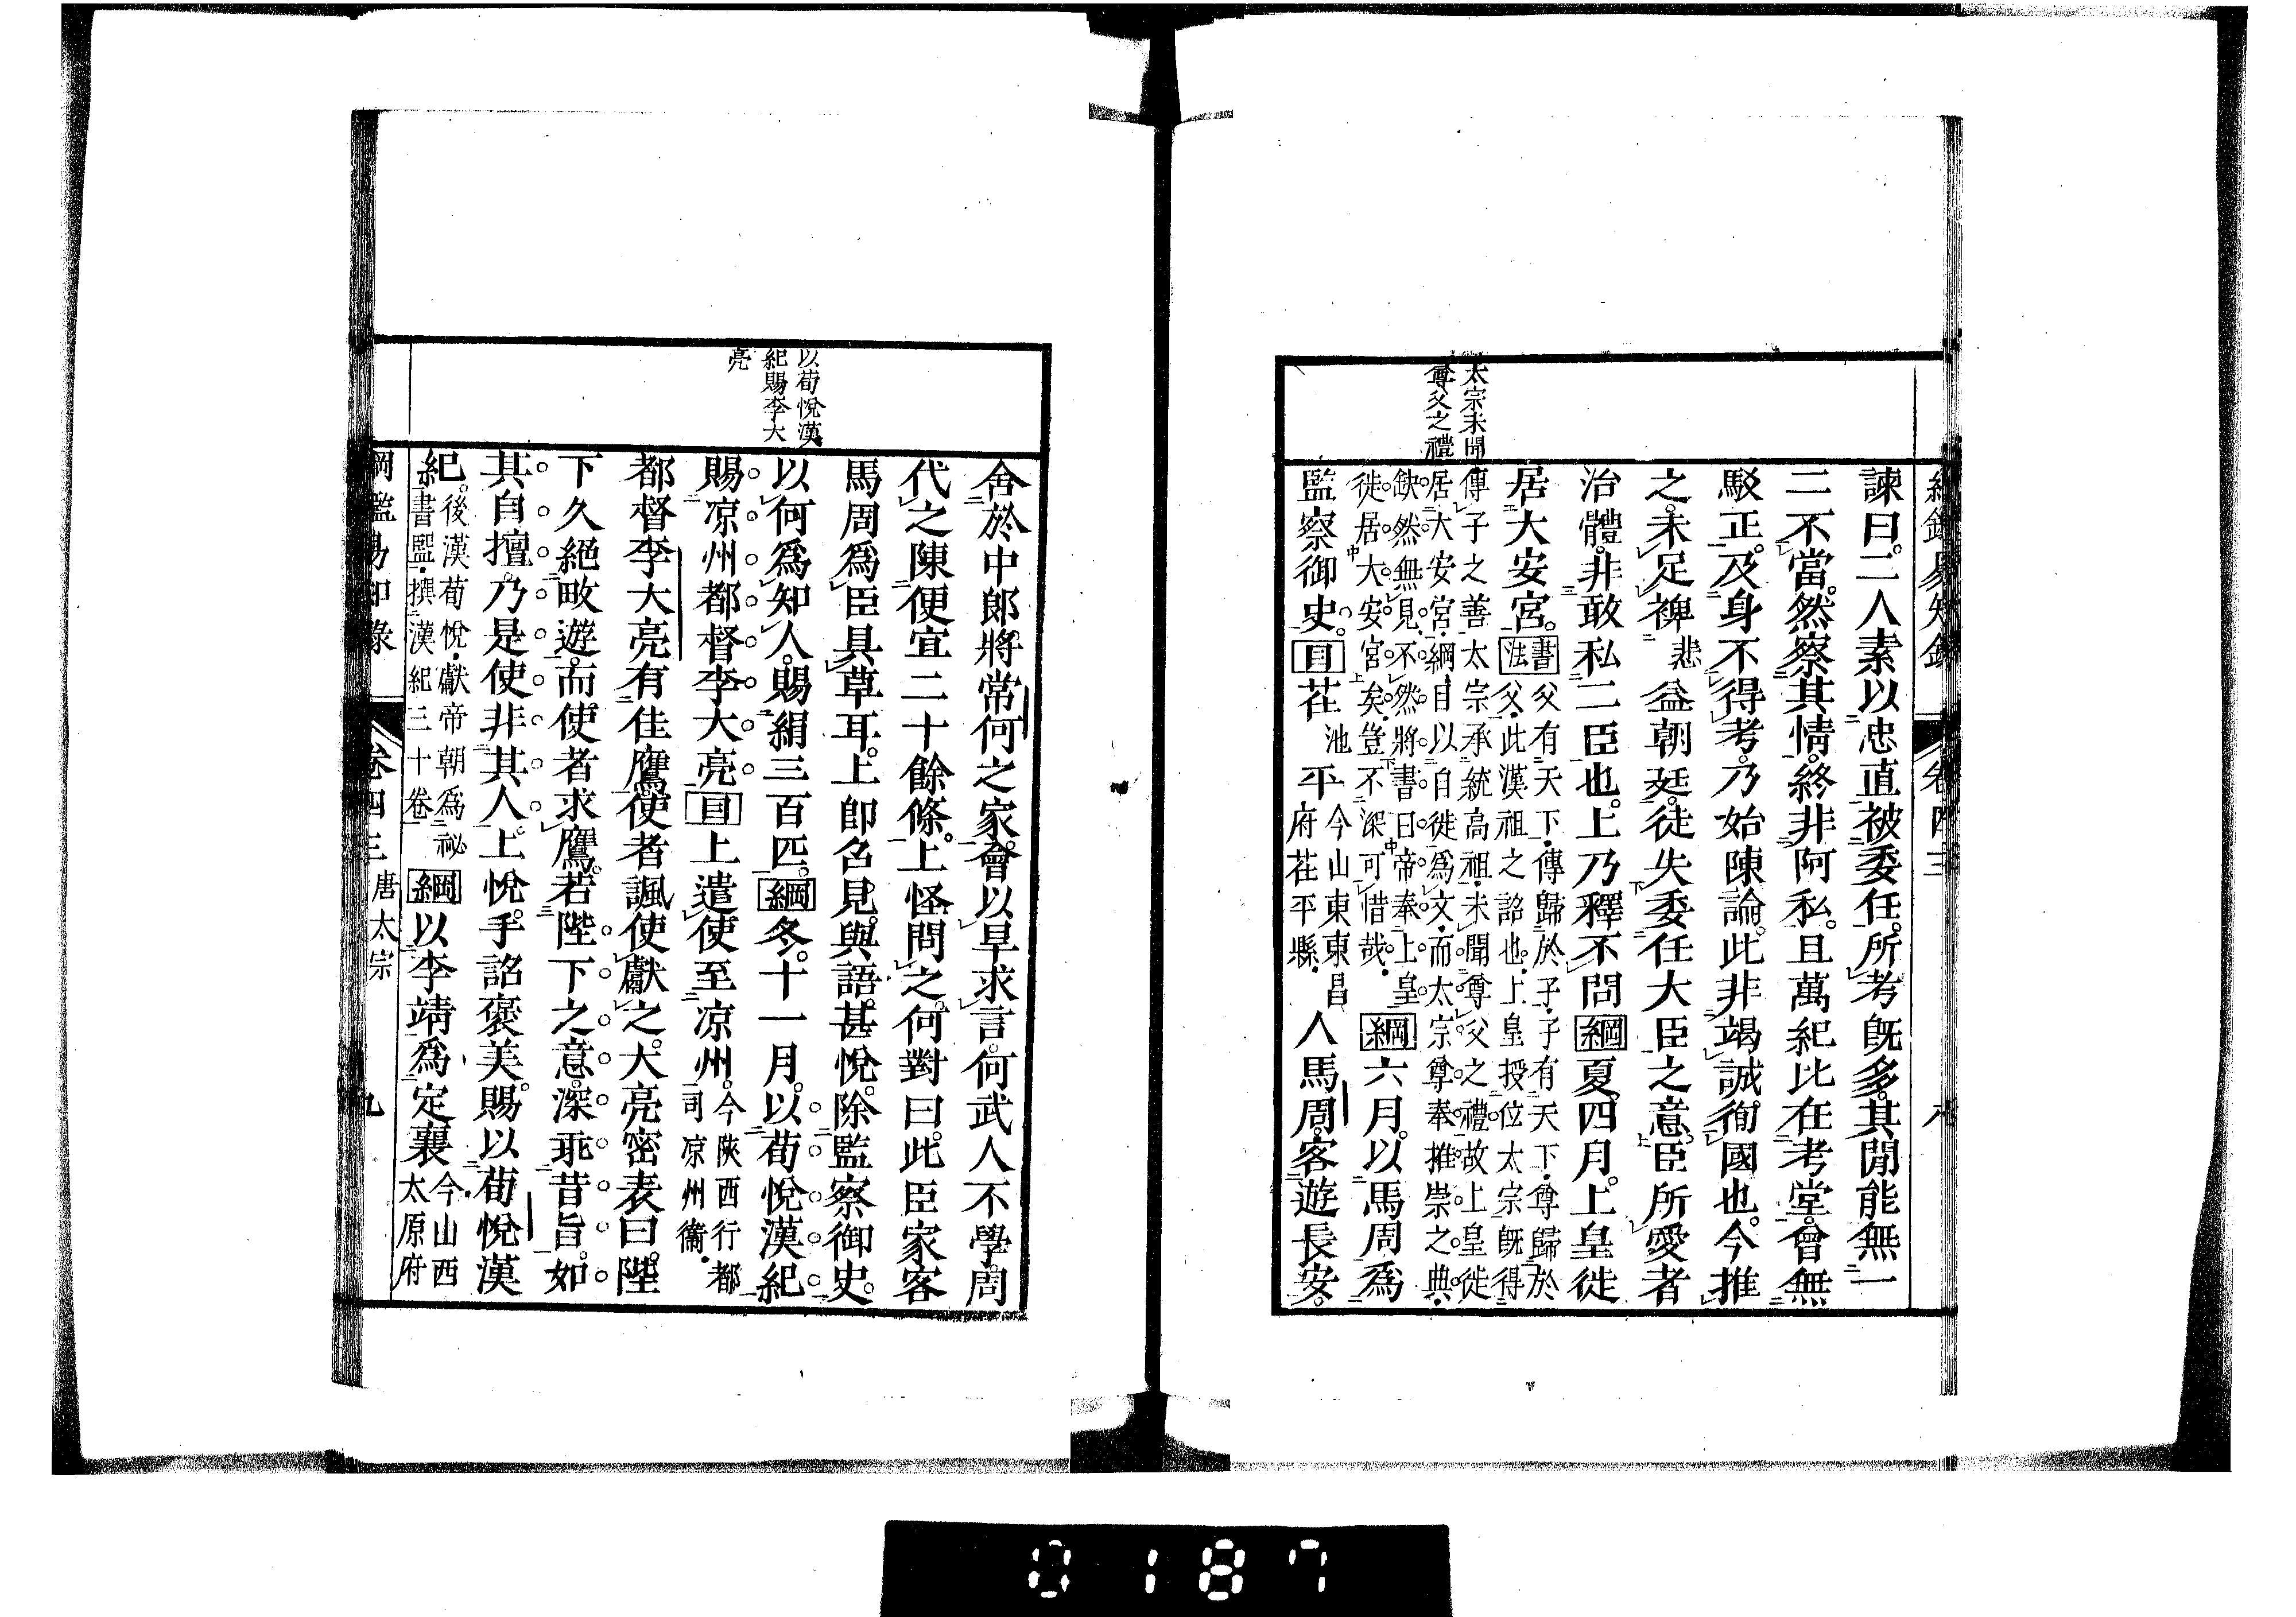 綱鑑易知錄 卷四三 八
太宗未聞
尊父之禮
諫曰。二人素以忠直被委任。所考旣多。其閒能無一
二不當。然察其情。終非阿私。且萬紀比在考堂。曾無
駁正。及身不得考。乃始陳論。此非竭誠徇國也。今推
之。未足裨悲益朝廷。徒失委任大臣之意。臣所愛者
治體。非敢私二臣也。上乃釋不問綱夏。四月。上皇徙
居大安宮。書法父有天下。傳歸於子。子有天下。尊歸於
父。此漢祖之詔也。上皇授位太宗旣得
傳子之善太宗承統高祖。未聞尊父之禮故上皇徙
居大安宮。綱目以自徙爲文。而太宗尊奉推崇之典。
缺然無見。不然將書曰帝奉上皇
徙居大安宮矣。豈不深可惜哉。綱六月。以馬周爲
監察御史。目茌池平今山東東昌
府茌平縣。人馬周。客遊長安。
以荀悅漢
紀賜李大
亮
舍於中郎將常何之家。會以旱求言。何武人不學。周
代之陳便宜二十餘條。上怪問之。何對曰。此臣家客
馬周爲臣具草耳。上卽召見。與語。甚悅。除監察御史。
以何爲知人。賜絹三百匹。綱冬。十一月。以荀悅漢紀
賜凉州都督李大亮目上遣使至凉州。今陝西行都
司凉州衞。
都督李大亮有佳鷹。使者諷使獻之。大亮密表曰。陛
下久絕畋遊。而使者求鷹。若陛下之意。深乖昔旨。如
其自擅。乃是使非其人。上悅。手詔褒美。賜以荀悅漢
紀。後漢荀悅。獻帝朝爲祕
書監。撰漢紀三十卷綱以李靖爲定襄今山西
太原府
綱鑑易知錄 卷四三 唐太宗 九
0187